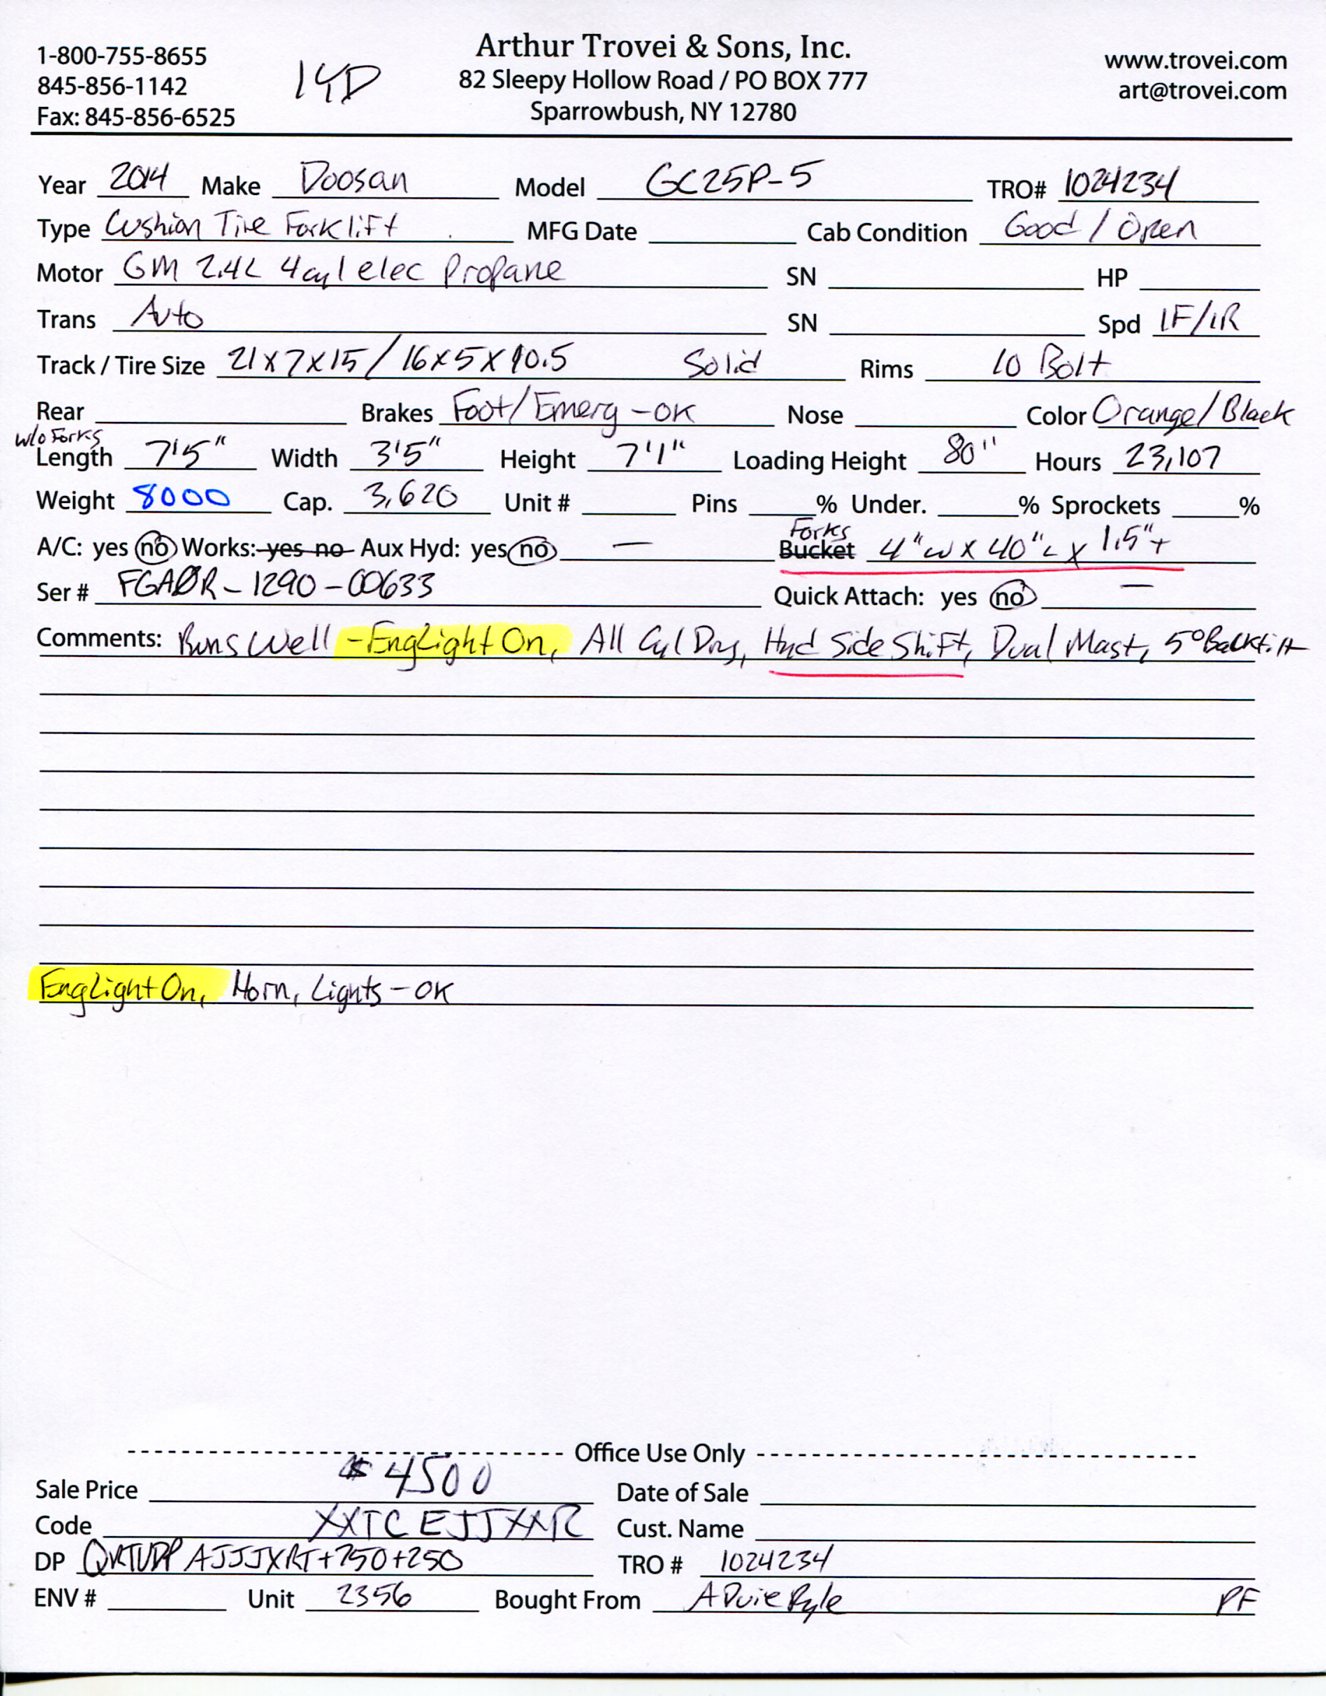 1-800-755-8655
845-856-1142
Fax: 845-856-6525
Arthur Trovei & Sons, Inc.
82 Sleepy Hollow Road / PO BOX 777
Sparrowbush, NY 12780
www.trovei.com
art@trovei.com
Year 2014 Make Doosan Model GC25P-5 TRO# 1024234
Type Cushion Tire Forklift MFG Date Cab Condition Good / Open
Motor GM 2.4L 4cyl elec Propane SN HP
Trans Auto SN Spd 1F/1R
Track / Tire Size 21x7x15 / 16x5x10.5 Solid Rims 10 Bolt
Rear Brakes Foot/Emerg - OK Nose Color Orange/Black
w/o Forks
Length 7'5" Width 3'5" Height 7'1" Loading Height 80" Hours 23,107
Weight 8000 Cap. 3,620 Unit # Pins % Under. % Sprockets %
Forks
A/C: yes no Works: yes no Aux Hyd: yes no — Bucket 4"W x 40"L x 1.5"T
Ser # FGA0R-1290-00633 Quick Attach: yes no —
Comments: Runs Well - Eng Light On, All Cyl Dry, Hyd Side Shift, Dual Mast, 5° Backtilt
Eng Light On, Horn, Lights - OK
Office Use Only
Sale Price $4500 Date of Sale
Code Cust. Name
DP +750+250 TRO # 1024234
ENV # Unit 2356 Bought From PF